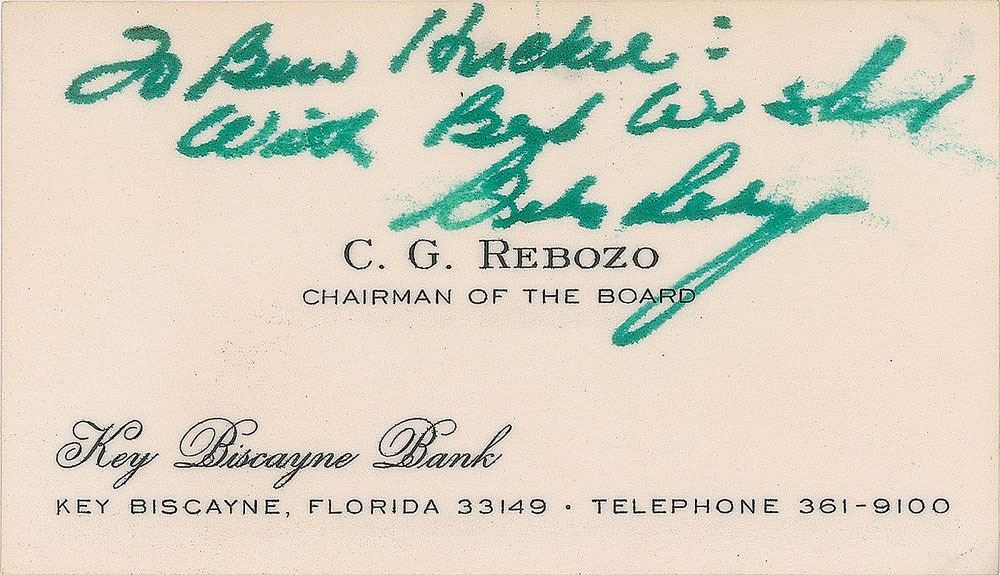 To Ben
With Best Wishes
Bebe Rebozo
C. G. REBOZO
CHAIRMAN OF THE BOARD
Key Biscayne Bank
KEY BISCAYNE, FLORIDA 33149 · TELEPHONE 361-9100